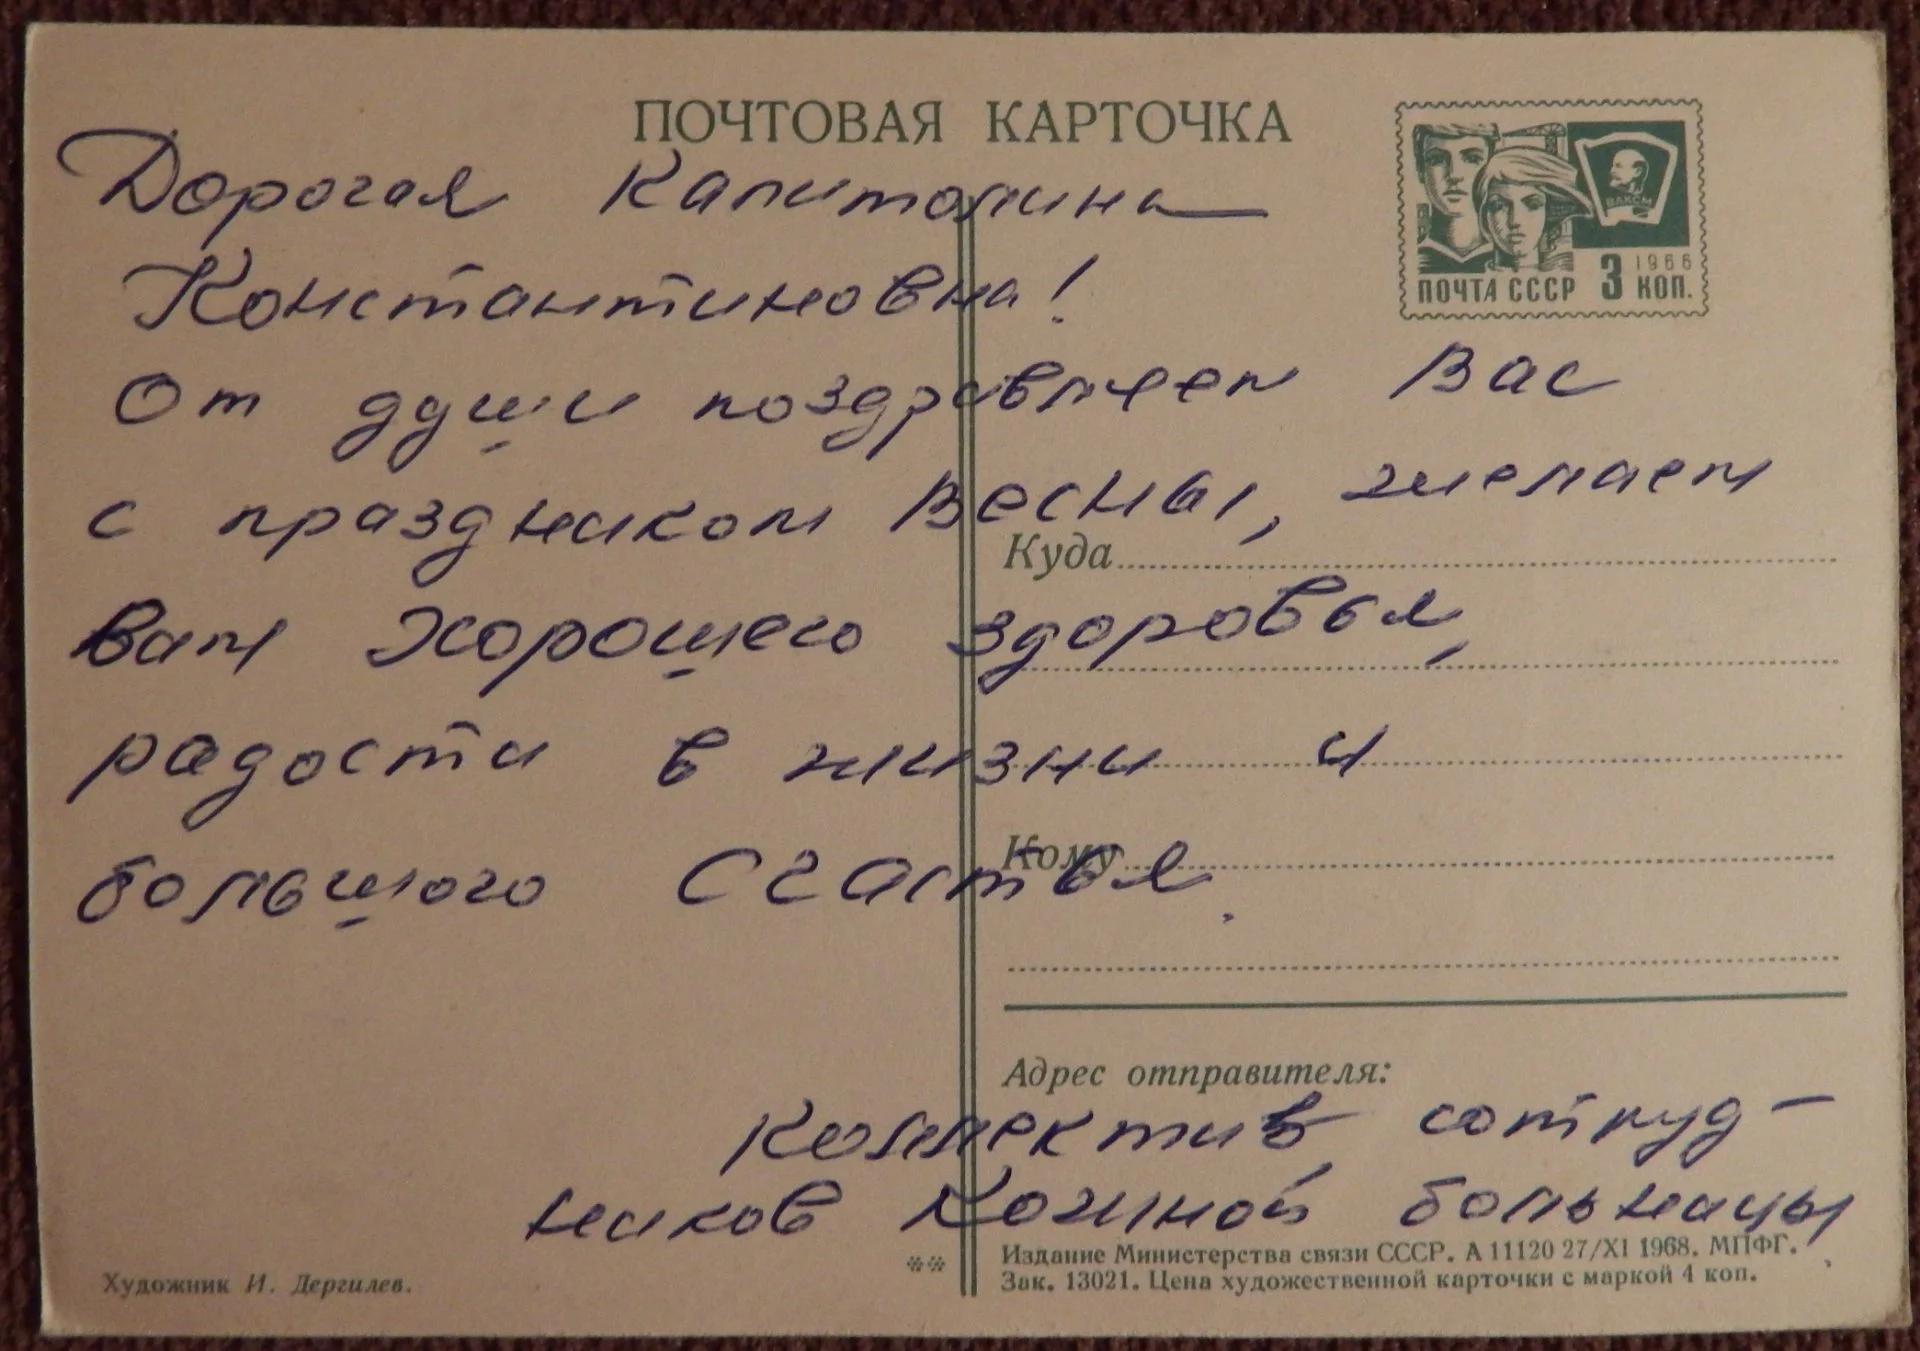 ПОЧТОВАЯ КАРТОЧКА
ВЛКСМ
1966
ПОЧТА СССР 3 КОП.
Дорогая Капитолина
Константиновна!
От души поздравляем Вас
с праздником Весны, желаем
Вам хорошего здоровья,
радости в жизни и
большого счастья.
Куда
Кому
Адрес отправителя:
Коллектив сотруд-
ников Кожной больницы
Издание Министерства связи СССР. А 11120 27/XI 1968. МПФГ.
Зак. 13021. Цена художественной карточки с маркой 4 коп.
Художник И. Дергилев.